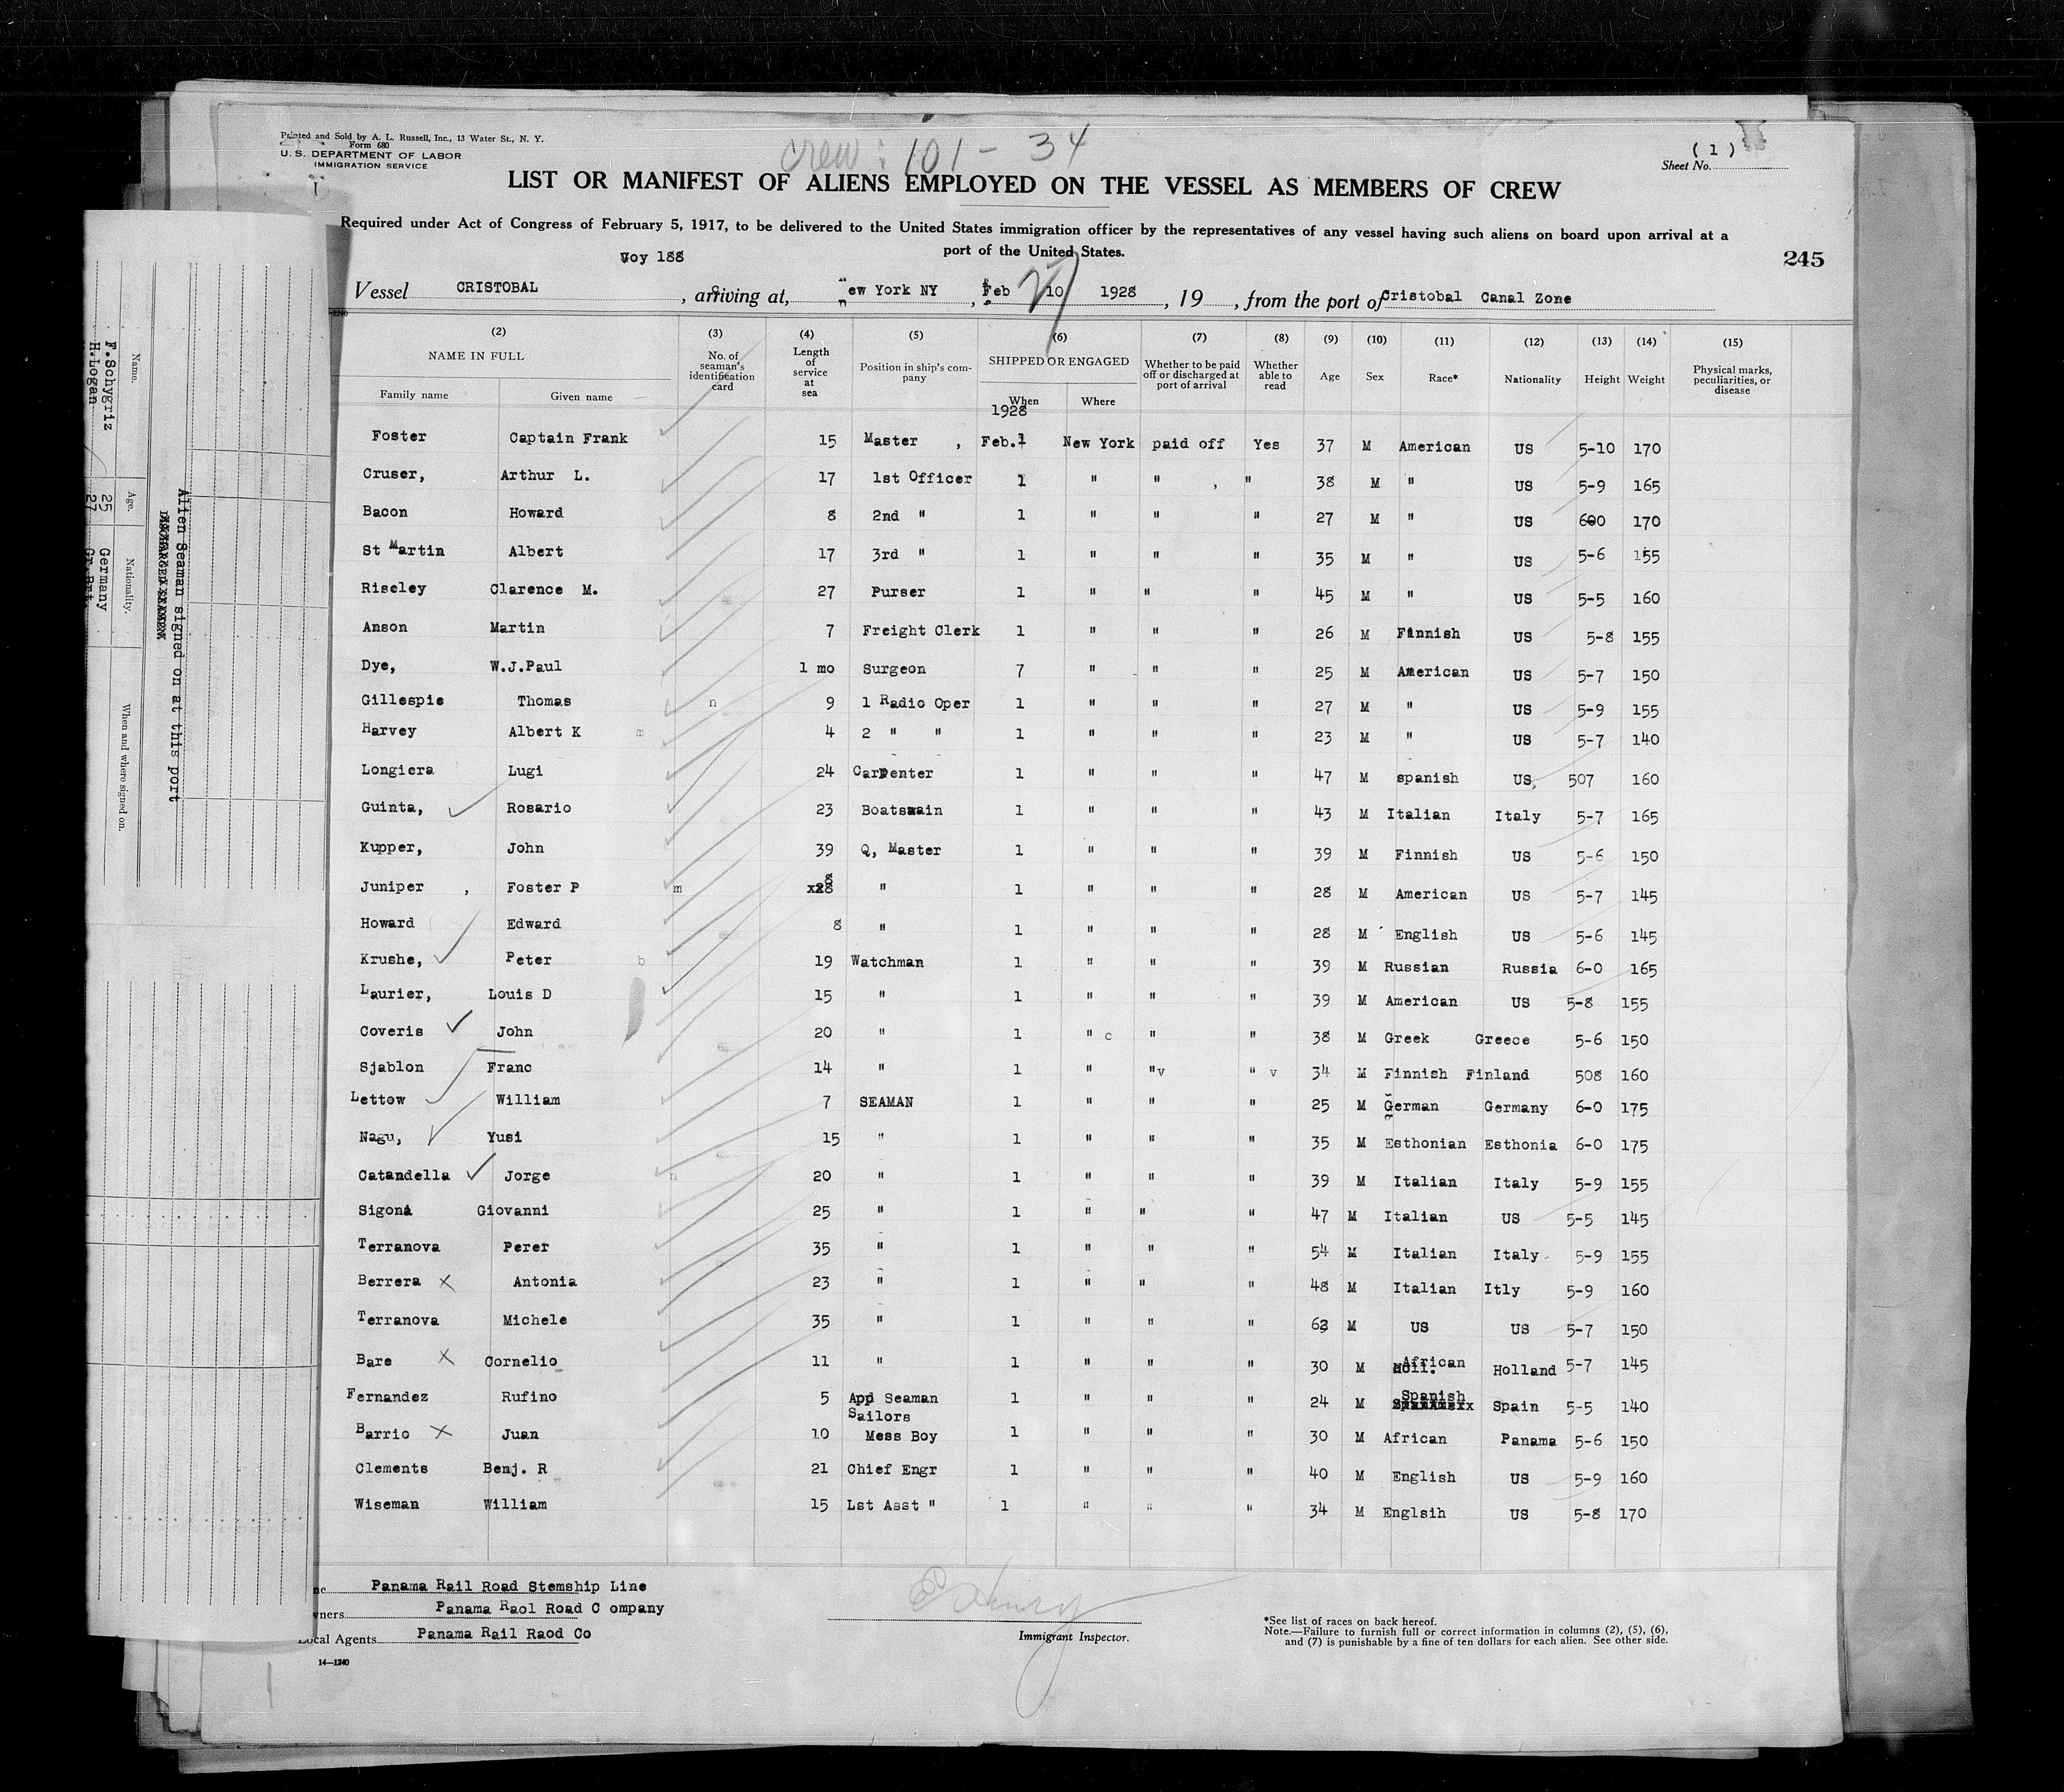 Printed and Sold by A. L. Russell, Inc., 13 Water St., N. Y.
Form 680
U. S. DEPARTMENT OF LABOR
IMMIGRATION SERVICE
crew: 101 - 34
( 1 )
Sheet No.
LIST OR MANIFEST OF ALIENS EMPLOYED ON THE VESSEL AS MEMBERS OF CREW
Required under Act of Congress of February 5, 1917, to be delivered to the United States immigration officer by the representatives of any vessel having such aliens on board upon arrival at a
port of the United States.
245
Voy 188
Vessel CRISTOBAL , arriving at, New York NY , Feb 10 1928 , 19 , from the port of Cristobal Canal Zone
(2) (3) (4) (5) (6) (7) (8) (9) (10) (11) (12) (13) (14) (15)
NAME IN FULL No. of seaman's identification card Length of service at sea Position in ship's company SHIPPED OR ENGAGED Whether to be paid off or discharged at port of arrival Whether able to read Age Sex Race* Nationality Height Weight Physical marks, peculiarities, or disease
Family name Given name When Where
1928
Foster Captain Frank 15 Master , Feb.1 New York paid off Yes 37 M American US 5-10 170
Cruser, Arthur L. 17 1st Officer 1 " " , " 38 M " US 5-9 165
Bacon Howard 8 2nd " 1 " " " 27 M " US 600 170
St Martin Albert 17 3rd " 1 " " " 35 M " US 5-6 155
Riseley Clarence M. 27 Purser 1 " " " 45 M " US 5-5 160
Anson Martin 7 Freight Clerk 1 " " " 26 M Finnish US 5-8 155
Dye, W.J.Paul 1 mo Surgeon 7 " " " 25 M American US 5-7 150
Gillespie Thomas n 9 1 Radio Oper 1 " " " 27 M " US 5-9 155
Harvey Albert K m 4 2 " " 1 " " " 23 M " US 5-7 140
Longiera Lugi 24 Carpenter 1 " " " 47 M spanish US, 507 160
Guinta, Rosario 23 Boatswain 1 " " " 43 M Italian Italy 5-7 165
Kupper, John 39 Q, Master 1 " " " 39 M Finnish US 5-6 150
Juniper , Foster P m 8 " 1 " " " 28 M American US 5-7 145
Howard Edward 8 " 1 " " " 28 M English US 5-6 145
Krushe, Peter b 19 Watchman 1 " " " 39 M Russian Russia 6-0 165
Laurier, Louis D 15 " 1 " " " 39 M American US 5-8 155
Coveris John 20 " 1 " c " " 38 M Greek Greece 5-6 150
Sjablon Franc 14 " 1 " "v " v 34 M Finnish Finland 508 160
Lettow William 7 SEAMAN 1 " " " 25 M German Germany 6-0 175
Nagu, Yusi 15 " 1 " " " 35 M Esthonian Esthonia 6-0 175
Catandella Jorge n 20 " 1 " " " 39 M Italian Italy 5-9 155
Sigoni Giovanni 25 " 1 " " " 47 M Italian US 5-5 145
Terranova Perer 35 " 1 " " " 54 M Italian Italy 5-9 155
Berrera X Antonia 23 " 1 " " " 48 M Italian Itly 5-9 160
Terranova Michele 35 " 1 " " " 63 M US US 5-7 150
Bare X Cornelio 11 " 1 " " " 30 M African Holland 5-7 145
Fernandez Rufino 5 App Seaman 1 " " " 24 M Spanish Spain 5-5 140
Sailors
Barrio X Juan 10 Mess Boy 1 " " " 30 M African Panama 5-6 150
Clements Benj. R 21 Chief Engr 1 " " " 40 M English US 5-9 160
Wiseman William 15 Lst Asst " 1 " " " 34 M Englsih US 5-8 170
Panama Rail Road Stemship Line
Panama Raol Road C ompany
Local Agents Panama Rail Raod Co
14-1240
Immigrant Inspector.
*See list of races on back hereof.
Note.—Failure to furnish full or correct information in columns (2), (5), (6),
and (7) is punishable by a fine of ten dollars for each alien. See other side.
Alien Seaman signed on at this port
Name. Age. Nationality. When and where signed on.
F.Schygriz 25 Germany
H.Logan 27 Gr.Brt.